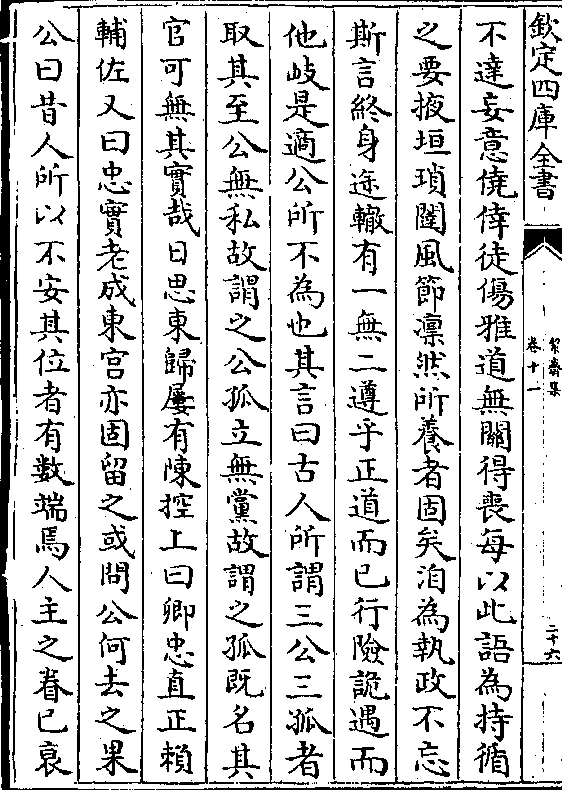 欽定四庫全書
絜齋集
卷十一
二十六
不達妄意僥倖徒傷雅道無關得喪每以此語為持循
之要掖垣瑣闥風節凜然所養者固矣洎為執政不忘
斯言終身途轍有一無二遵乎正道而已行險詭遇而
他岐是適公所不為也其言曰古人所謂三公三孤者
取其至公無私故謂之公孤立無黨故謂之孤既名其
官可無其實哉日思東歸屢有陳控上曰卿忠直正賴
輔佐又曰忠實老成東宮亦固留之或問公何去之果
公曰昔人所以不安其位者有數端焉人主之眷已衰